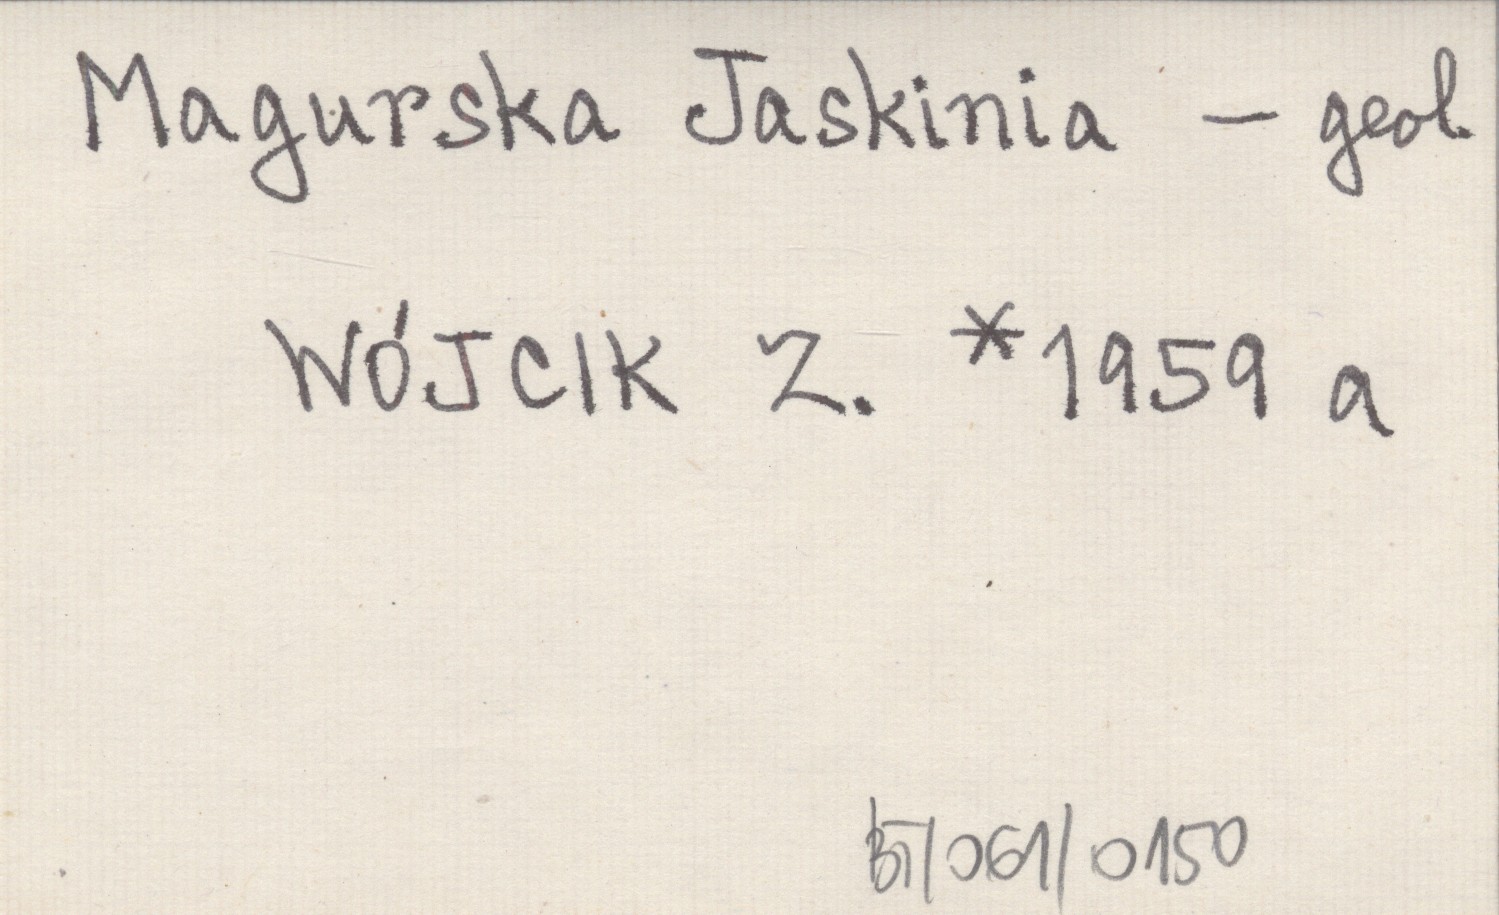 Magurska Jaskinia – geol.
WÓJCIK Z. *1959 a
BT/061/0150